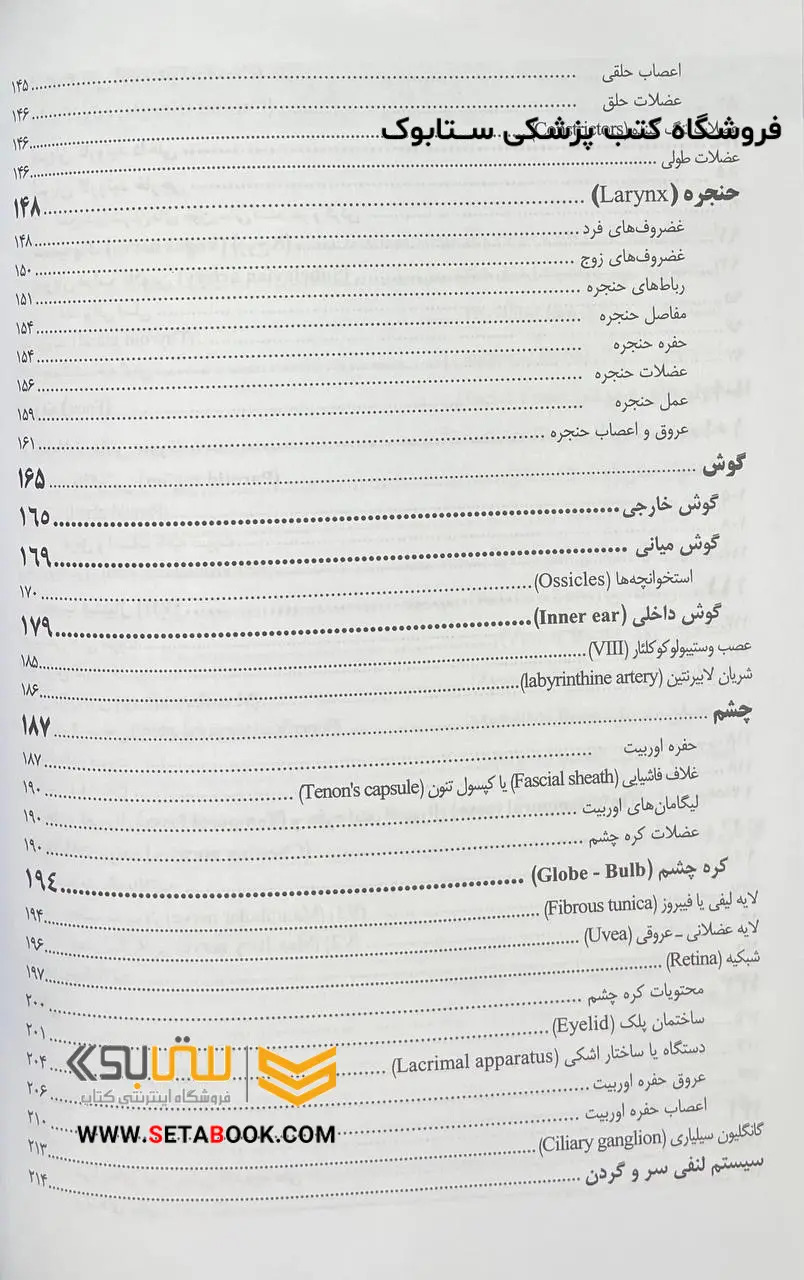 اعصاب حلقی ۱۴۵
عضلات حلق ۱۴۶
فروشگاه کتب پزشکی ستابوک
(Constrictors) ۱۴۶
عضلات طولی ۱۴۶
حنجره (Larynx) ۱۴۸
غضروف‌های فرد ۱۴۸
غضروف‌های زوج ۱۵۰
رباط‌های حنجره ۱۵۱
مفاصل حنجره ۱۵۴
حفره حنجره ۱۵۴
عضلات حنجره ۱۵۶
عمل حنجره ۱۵۹
عروق و اعصاب حنجره ۱۶۱
گوش ۱۶۵
گوش خارجی ۱۶۵
گوش میانی ۱۶۹
استخوانچه‌ها (Ossicles) ۱۷۰
گوش داخلی (Inner ear) ۱۷۹
عصب وستیبولوکوکلئار (VIII) ۱۸۵
شریان لابیرنتین (labyrinthine artery) ۱۸۶
چشم ۱۸۷
حفره اوربیت ۱۸۷
غلاف فاشیایی (Fascial sheath) یا کپسول تنون (Tenon's capsule) ۱۹۰
لیگامان‌های اوربیت ۱۹۰
عضلات کره چشم ۱۹۰
کره چشم (Globe - Bulb) ۱۹٤
لایه لیفی یا فیبروز (Fibrous tunica) ۱۹۴
لایه عضلانی - عروقی (Uvea) ۱۹۶
شبکیه (Retina) ۱۹۷
محتویات کره چشم ۲۰۰
ساختمان پلک (Eyelid) ۲۰۱
دستگاه یا ساختار اشکی (Lacrimal apparatus) ۲۰۴
عروق حفره اوربیت ۲۰۶
اعصاب حفره اوربیت ۲۱۰
گانگلیون سیلیاری (Ciliary ganglion) ۲۱۳
سیستم لنفی سر و گردن ۲۱۴
ستابوک
فروشگاه اینترنتی کتاب
WWW.SETABOOK.COM